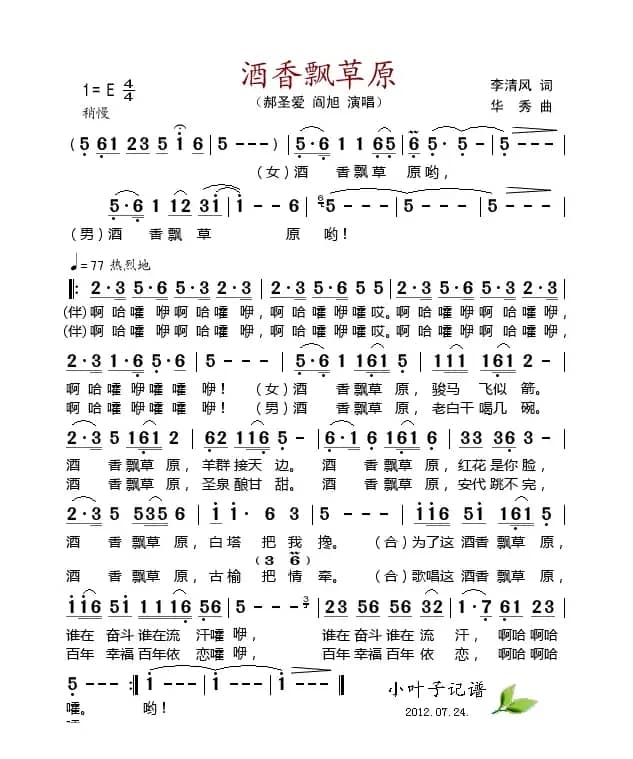 酒香飘草原
1=E 4/4
（郝圣爱 阎旭 演唱）
李清风 词
稍慢
华 秀 曲
(5·61 23 5 i 6 | 5 - - -) | 5·6 1 1 65 | 6 5· 5 · | 5 - - - |
（女）酒 香飘草 原哟，
5·6 1 12 3i | i - - 6 | 5 - - - | 5 - - - |
（男）酒 香飘 草 原 哟！
♩=77 热烈地
‖: 2·3 5·6 5·6 2·3 | 2·3 5·6 5·6 55 | 2·3 5·6 5·6 2·3 |
(伴)啊 哈嚯 咿啊 哈嚯 咿，啊 哈嚯 咿嚯哎。啊 哈嚯 咿啊 哈嚯 咿，
(伴)啊 哈嚯 咿啊 哈嚯 咿，啊 哈嚯 咿嚯哎。啊 哈嚯 咿啊 哈嚯 咿，
2·3 1·6 5·6 5·6 | 5 - - - | 5·6 6 1 161 5 | 111 161 5 - |
啊 哈 嚯 咿嚯 嚯 咿！ （女）酒 香飘草 原，骏马 飞似 箭。
啊 哈 嚯 咿嚯 嚯 咿！ （男）酒 香飘草 原，老白干喝几 碗。
2·3 5 161 2 | 62 116 5 - | 6·1 6 161 3 | 33 36 3 - |
酒 香飘草 原，羊群 接天 边。 酒 香飘草 原，红花 是你 脸，
酒 香飘草 原，圣泉 酿甘 甜。 酒 香飘草 原，安代 跳不 完，
2·3 5 535 6 | i i· 6 3 | 5 - - - | i i6 5i 161 5 |
酒 香飘草 原，白塔 把 我 搀。 （合）为了这 酒香 飘草 原，
( 3 6 )
酒 香飘草 原，古榆 把 情 牵。 （合）歌唱这 酒香 飘草 原，
i i6 5i 1 1 16 56 | 5 - - 3/2 | 23 56 56 32 | 1·7 61 23 |
谁在 奋斗 谁在流 汗嚯 咿， 谁在 奋斗 谁在 流 汗，啊哈 啊哈
百年 幸福 百年依 恋嚯 咿， 百年 幸福 百年 依 恋，啊哈 啊哈
5 - - :‖ i - - - | i - - - | i - - - ‖
嚯。 哟！
小叶子记谱
2012.07.24.
嚯